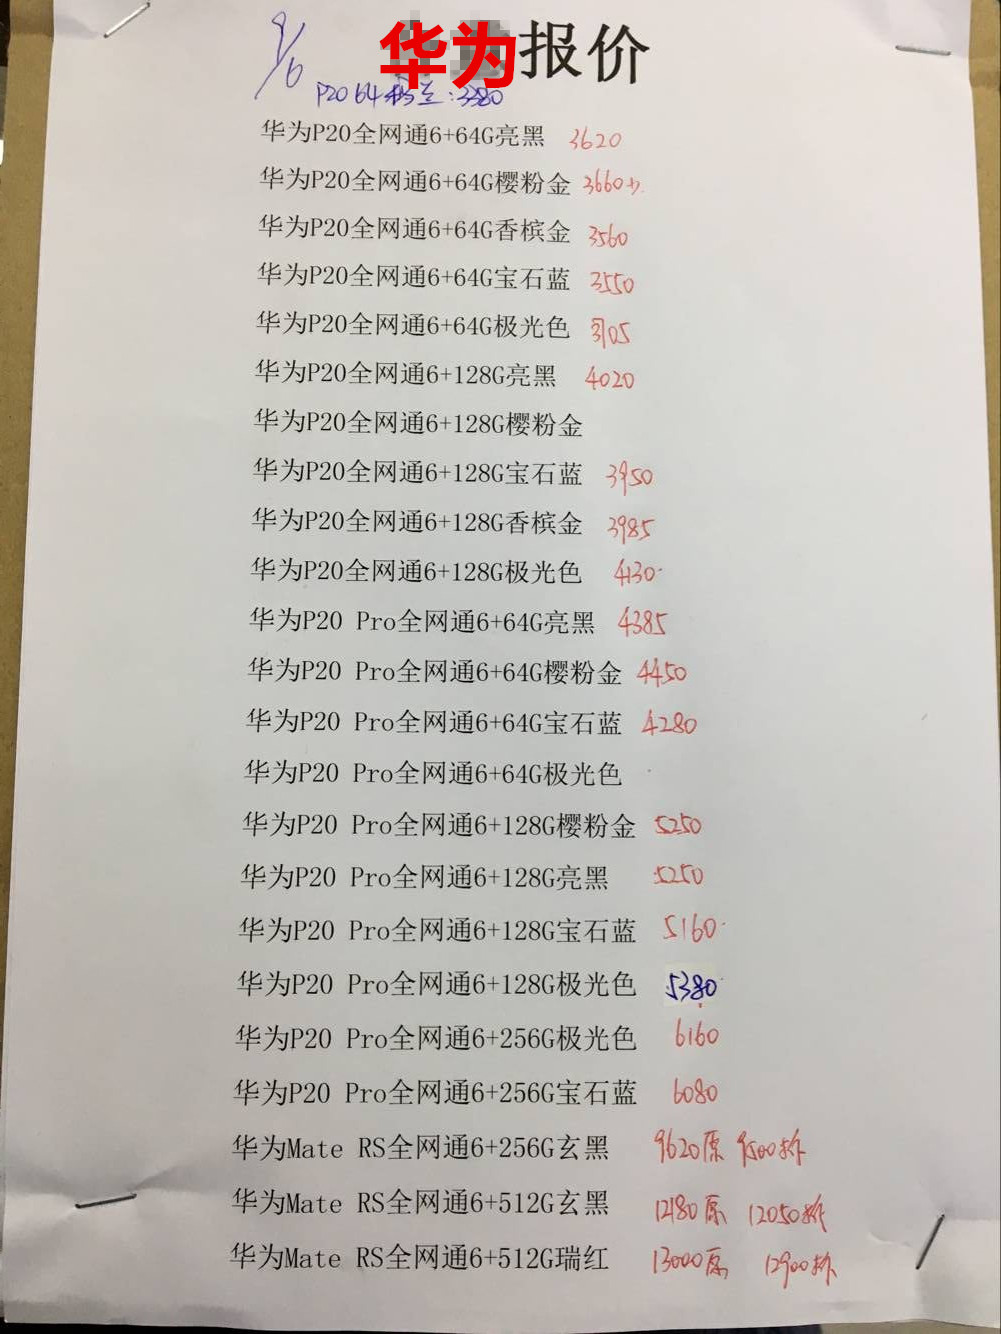 9/6
华为报价
P20 64 粉兰:3380
华为P20全网通6+64G亮黑 3620
华为P20全网通6+64G樱粉金 3660
华为P20全网通6+64G香槟金 3560
华为P20全网通6+64G宝石蓝 3550
华为P20全网通6+64G极光色 3705
华为P20全网通6+128G亮黑 4020
华为P20全网通6+128G樱粉金
华为P20全网通6+128G宝石蓝 3950
华为P20全网通6+128G香槟金 3985
华为P20全网通6+128G极光色 4130
华为P20 Pro全网通6+64G亮黑 4385
华为P20 Pro全网通6+64G樱粉金 4450
华为P20 Pro全网通6+64G宝石蓝 4280
华为P20 Pro全网通6+64G极光色
华为P20 Pro全网通6+128G樱粉金 5250
华为P20 Pro全网通6+128G亮黑 5250
华为P20 Pro全网通6+128G宝石蓝 5160
华为P20 Pro全网通6+128G极光色 5380
华为P20 Pro全网通6+256G极光色 6160
华为P20 Pro全网通6+256G宝石蓝 6080
华为Mate RS全网通6+256G玄黑 9620原 9500拆
华为Mate RS全网通6+512G玄黑 12180原 12050拆
华为Mate RS全网通6+512G瑞红 13000原 12900拆